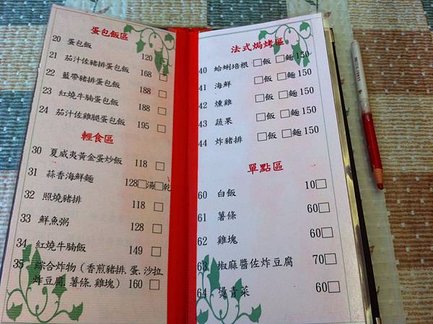 蛋包飯區
20 蛋包飯 120
21 茄汁佐豬排蛋包飯 168
22 藍帶豬排蛋包飯 188
23 紅燒牛腩蛋包飯 188
24 茄汁佐雞腿蛋包飯 195
輕食區
30 夏威夷黃金蛋炒飯 118
31 蒜香海鮮麵 128□湯□乾
32 照燒豬排 118
33 鮮魚粥 128
34 紅燒牛腩飯 149
35 綜合炸物(香煎豬排,蛋,沙拉
炸豆腐,薯條,雞塊) 160
法式焗烤區
40 蛤蜊培根 □飯 □麵 150
41 海鮮 □飯 □麵 150
42 燻雞 □飯 □麵 150
43 蔬果 □飯 □麵 150
44 炸豬排 □飯 □麵 150
單點區
60 白飯 10□
61 薯條 60□
62 雞塊 60□
63 椒麻醬佐炸豆腐 70□
64 燙青菜 60□